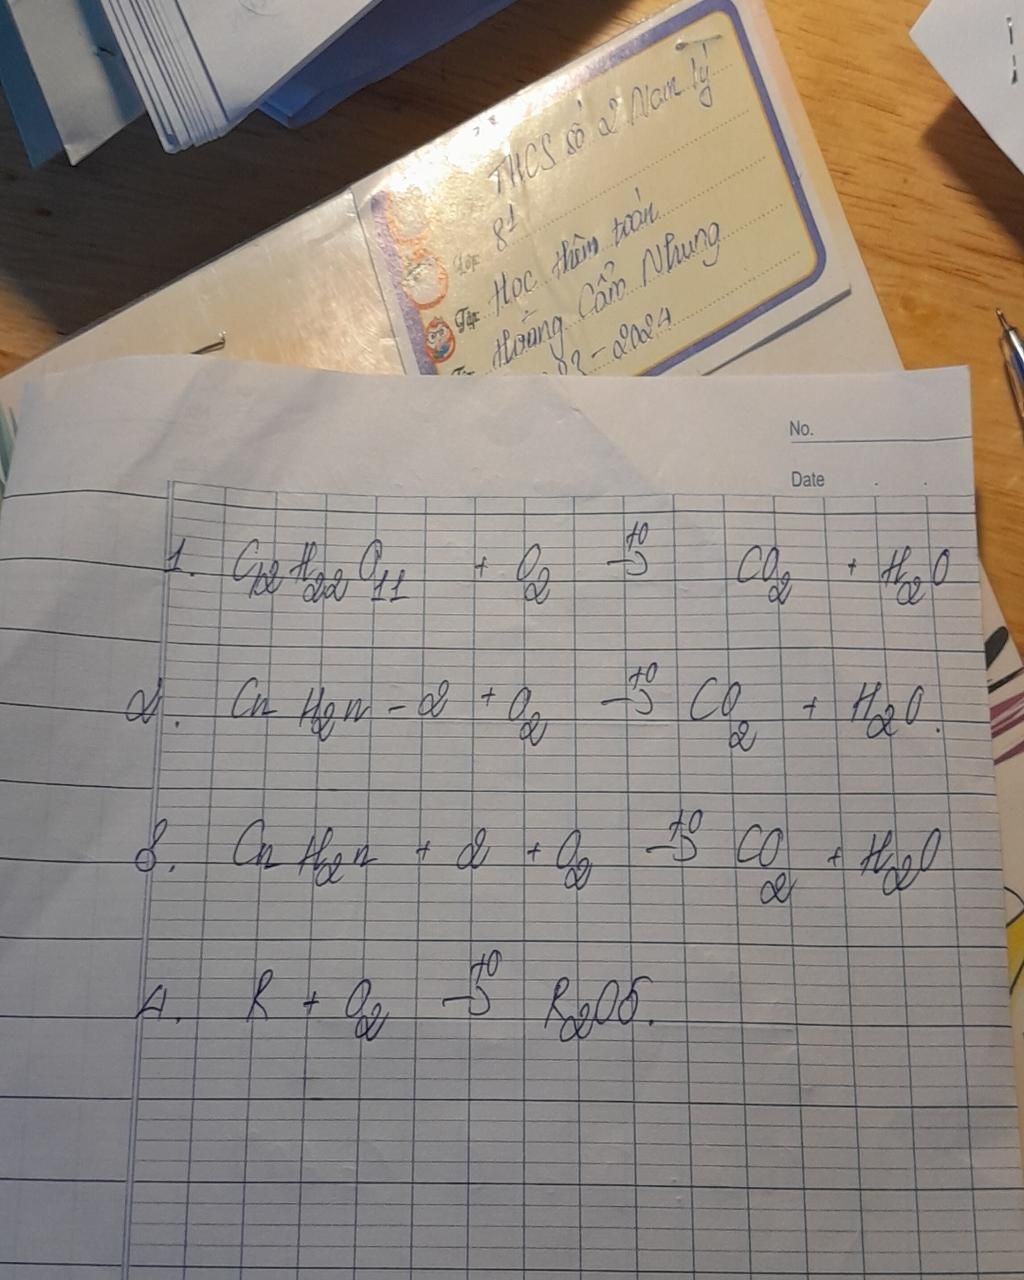 THCS số 2 Nam lý
Lớp: 81
Tập: Học thêm toán
Hoàng Cẩm Nhung
-2024
No.
Date . .
1. C₁₂H₂₂O₁₁ + O₂ →t⁰ CO₂ + H₂O
2. Cn H₂n - 2 + O₂ →t⁰ CO₂ + H₂O.
3. Cn H₂n + 2 + O₂ →t⁰ CO₂ + H₂O
4. R + O₂ →t⁰ R₂O5.